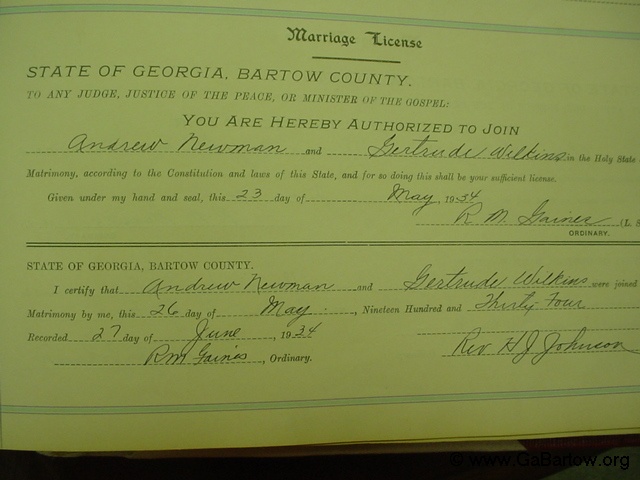 Marriage License
STATE OF GEORGIA, BARTOW COUNTY.
TO ANY JUDGE, JUSTICE OF THE PEACE, OR MINISTER OF THE GOSPEL:
YOU ARE HEREBY AUTHORIZED TO JOIN
Andrew Newman and Gertrude Wilkins in the Holy State
Matrimony, according to the Constitution and laws of this State, and for so doing this shall be your sufficient license.
Given under my hand and seal, this 23 day of May, 1934
R. M. Gaines (L. S
ORDINARY.
STATE OF GEORGIA, BARTOW COUNTY.
I certify that Andrew Newman and Gertrude Wilkins were joined
Matrimony by me, this 26 day of May, Nineteen Hundred and Thirty Four
Recorded 27 day of June, 1934
RM Gaines, Ordinary. Rev H J Johnson
© www.GaBartow.org